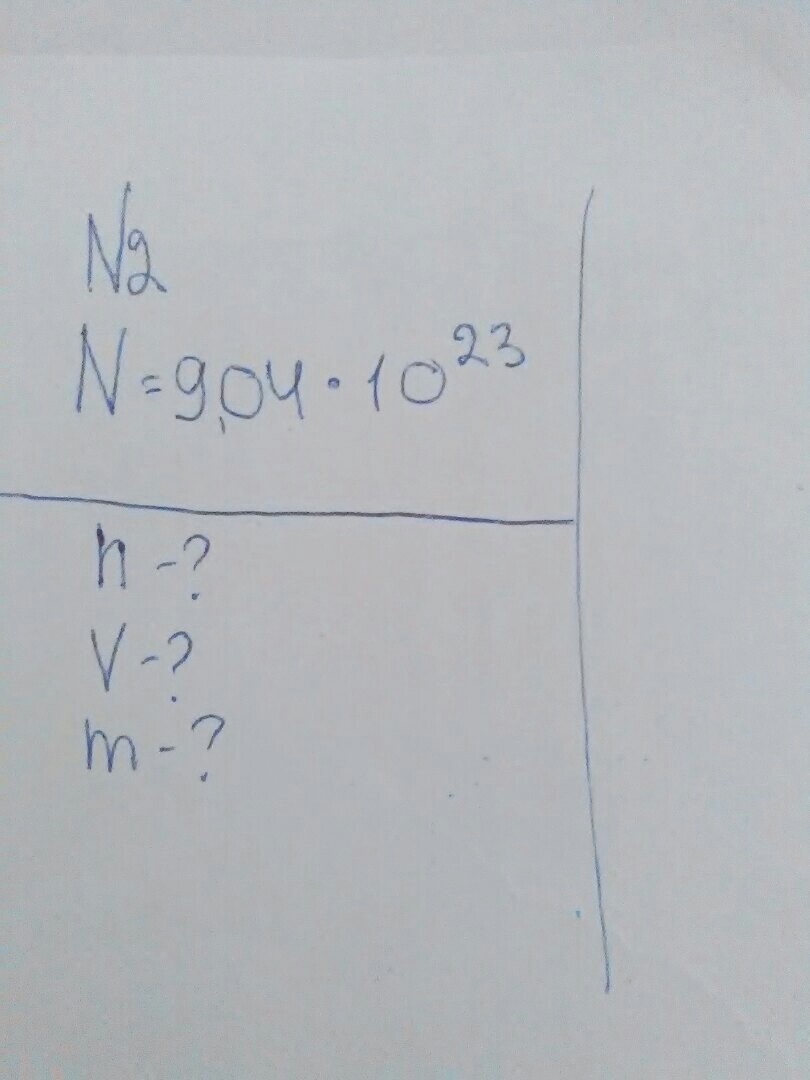 N2
N=9,04·10²³
n-?
V-?
m-?